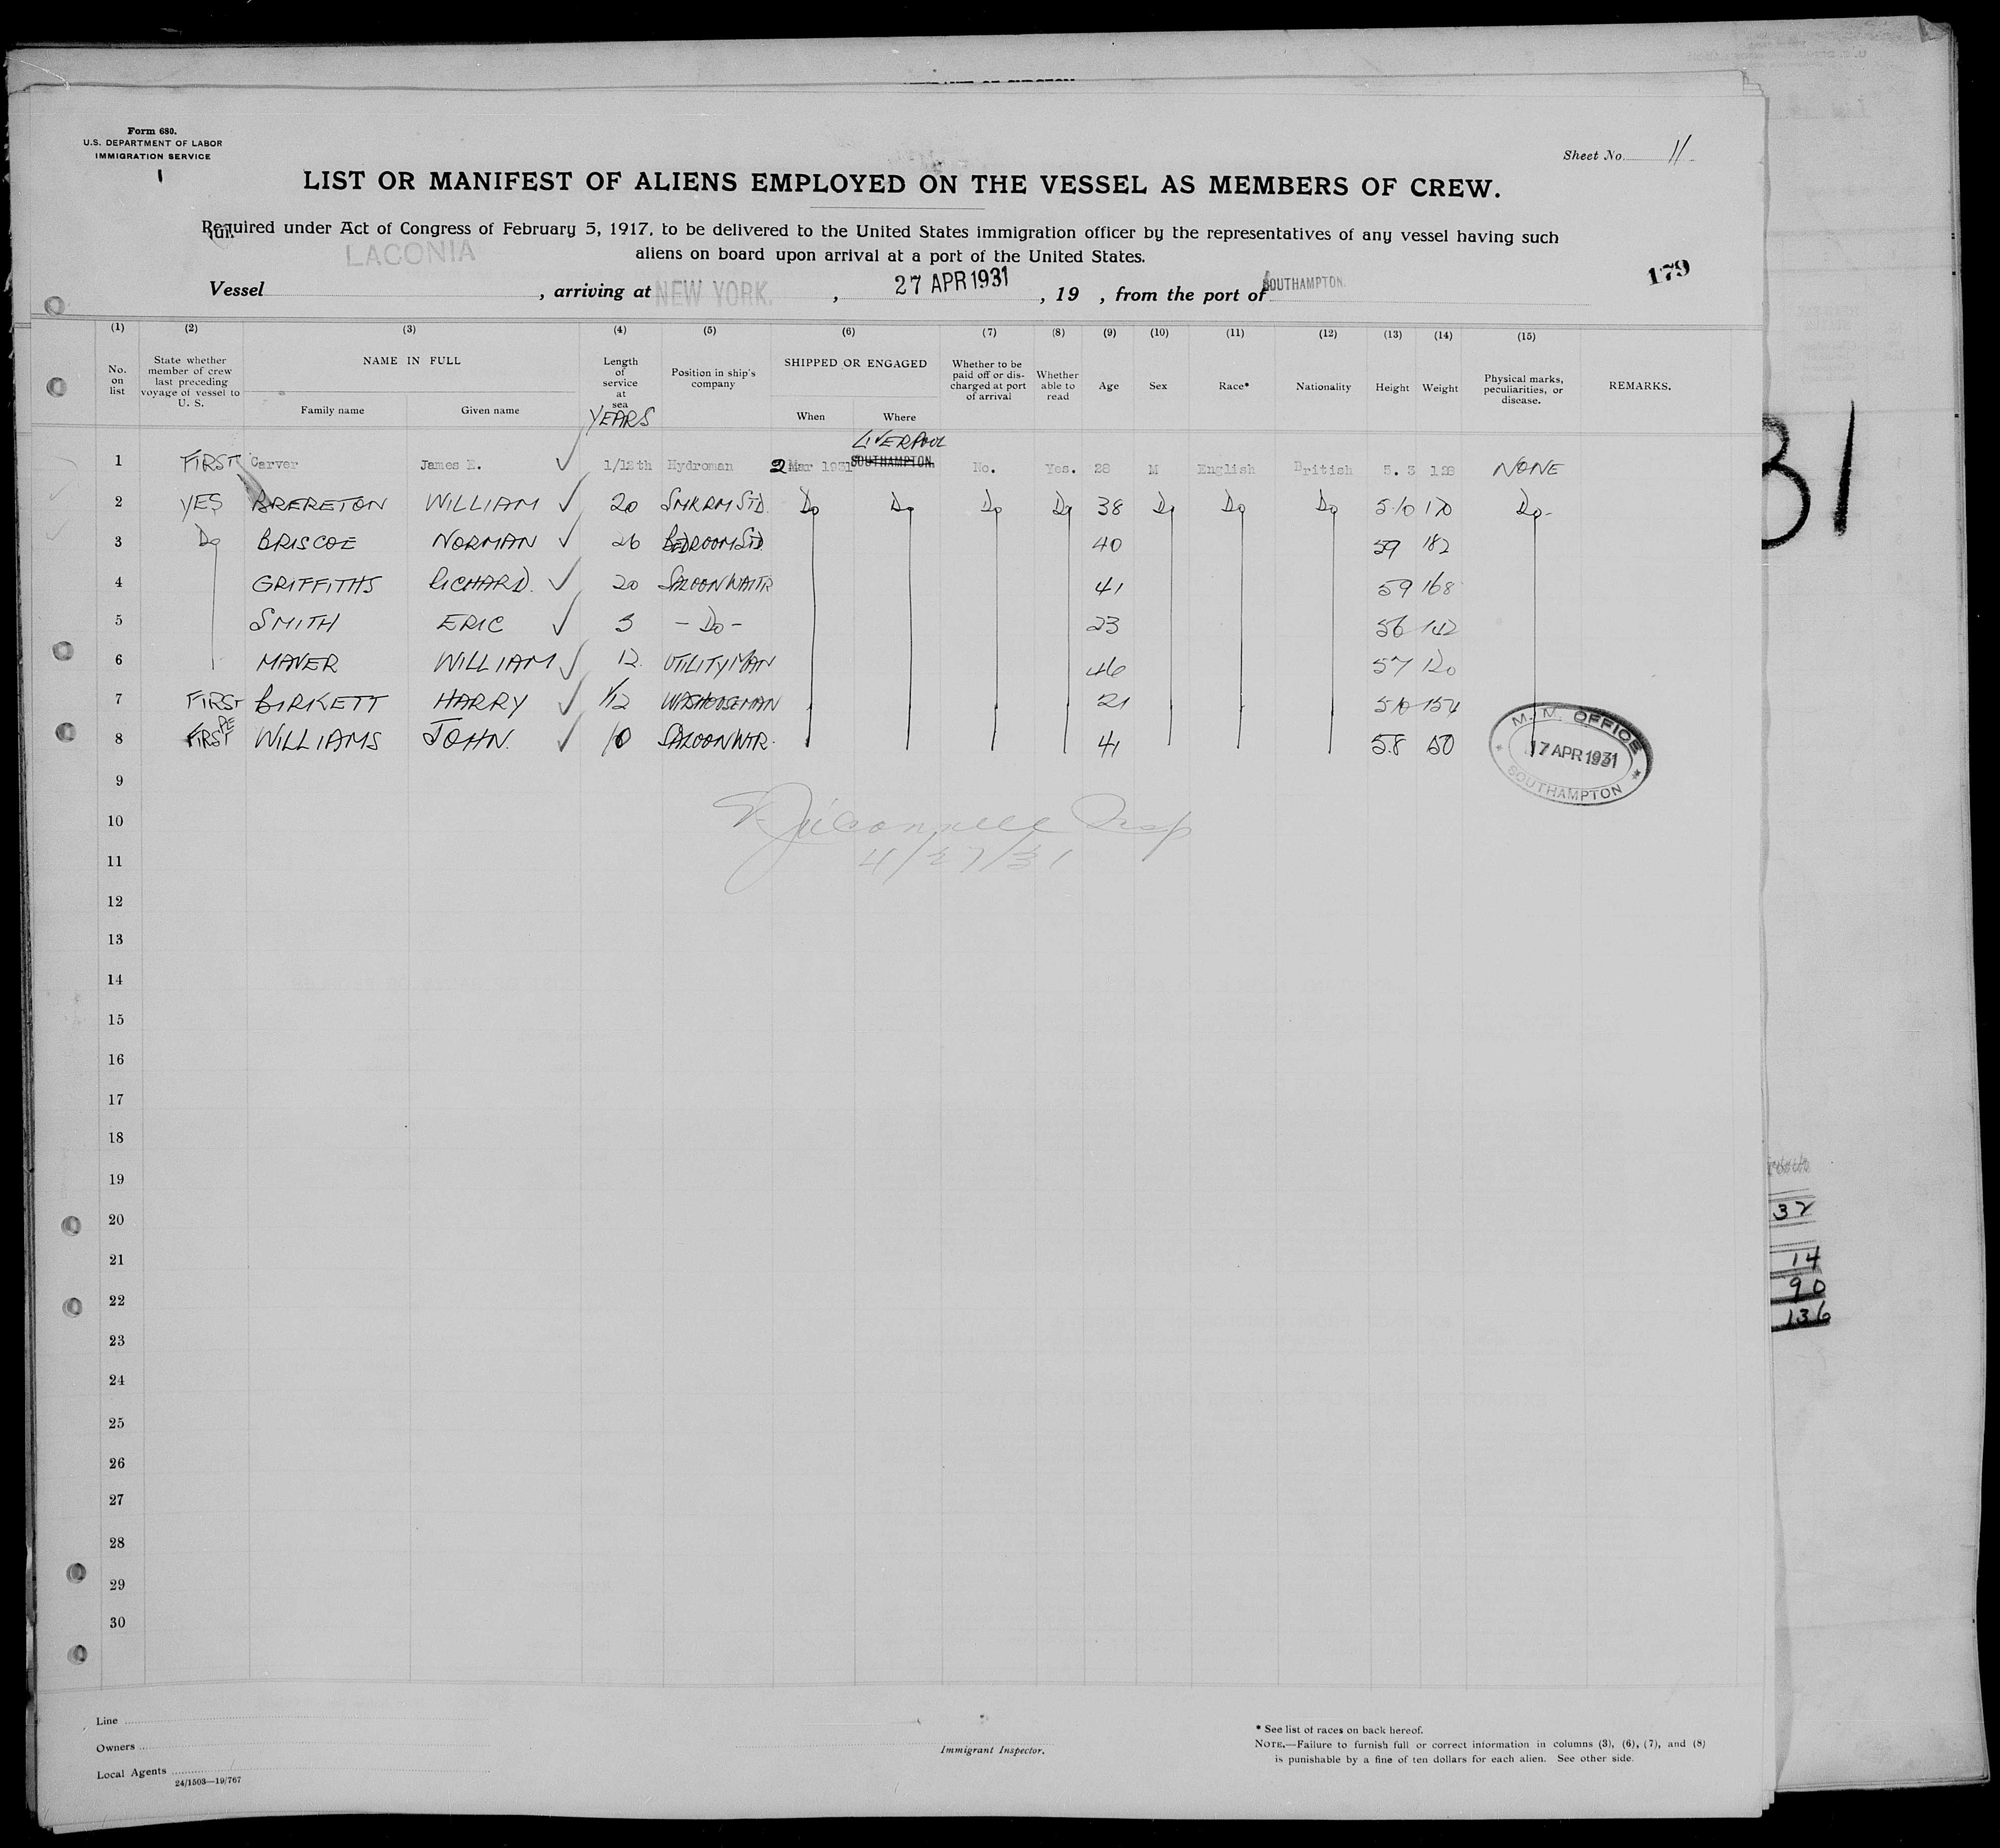 Form 680.
U.S. DEPARTMENT OF LABOR
IMMIGRATION SERVICE
1
Sheet No. 11
LIST OR MANIFEST OF ALIENS EMPLOYED ON THE VESSEL AS MEMBERS OF CREW.
Required under Act of Congress of February 5, 1917, to be delivered to the United States immigration officer by the representatives of any vessel having such
aliens on board upon arrival at a port of the United States.
179
Vessel LACONIA, arriving at NEW YORK., 27 APR 1931, 19 , from the port of SOUTHAMPTON.
(1) (2) (3) (4) (5) (6) (7) (8) (9) (10) (11) (12) (13) (14) (15)
No. on list
State whether member of crew last preceding voyage of vessel to U. S.
NAME IN FULL
Family name
Given name
Length of service at sea
YEARS
Position in ship's company
SHIPPED OR ENGAGED
When
Where
Whether to be paid off or discharged at port of arrival
Whether able to read
Age
Sex
Race*
Nationality
Height
Weight
Physical marks, peculiarities, or disease.
REMARKS.
LIVERPOOL
1 FIRST Carver James E. ✓ 1/12th Hydroman 2 Mar 1931 SOUTHAMPTON. No. Yes. 28 M English British 5. 3 128 NONE
2 YES BRERETON WILLIAM ✓ 20 SMKRM STD. Do Do Do Do 38 Do Do Do 5·10 170 Do-
3 Do BRISCOE NORMAN ✓ 26 BEDROOM STD 40 59 182
4 GRIFFITHS RICHARD. ✓ 20 SALOON WAITR 41 59 168
5 SMITH ERIC ✓ 3 - Do - 23 56 142
6 MAVER WILLIAM ✓ 12. UTILITYMAN 46 57 120
7 FIRST BIRKETT HARRY ✓ 1/12 WASHOUSEMAN 21 510 154
8 FIRST RE WILLIAMS JOHN. ✓ 10 SALOON WTR. 41 5.8 150
M. M. OFFICE
17 APR 1931
SOUTHAMPTON
9
10
4/27/31
11
12
13
14
15
16
17
18
19
20
21
22
23
24
25
26
27
28
29
30
31
32
14
90
136
Line
Owners
Local Agents
24/1503—19/767
Immigrant Inspector.
* See list of races on back hereof.
NOTE.—Failure to furnish full or correct information in columns (3), (6), (7), and (8)
is punishable by a fine of ten dollars for each alien. See other side.